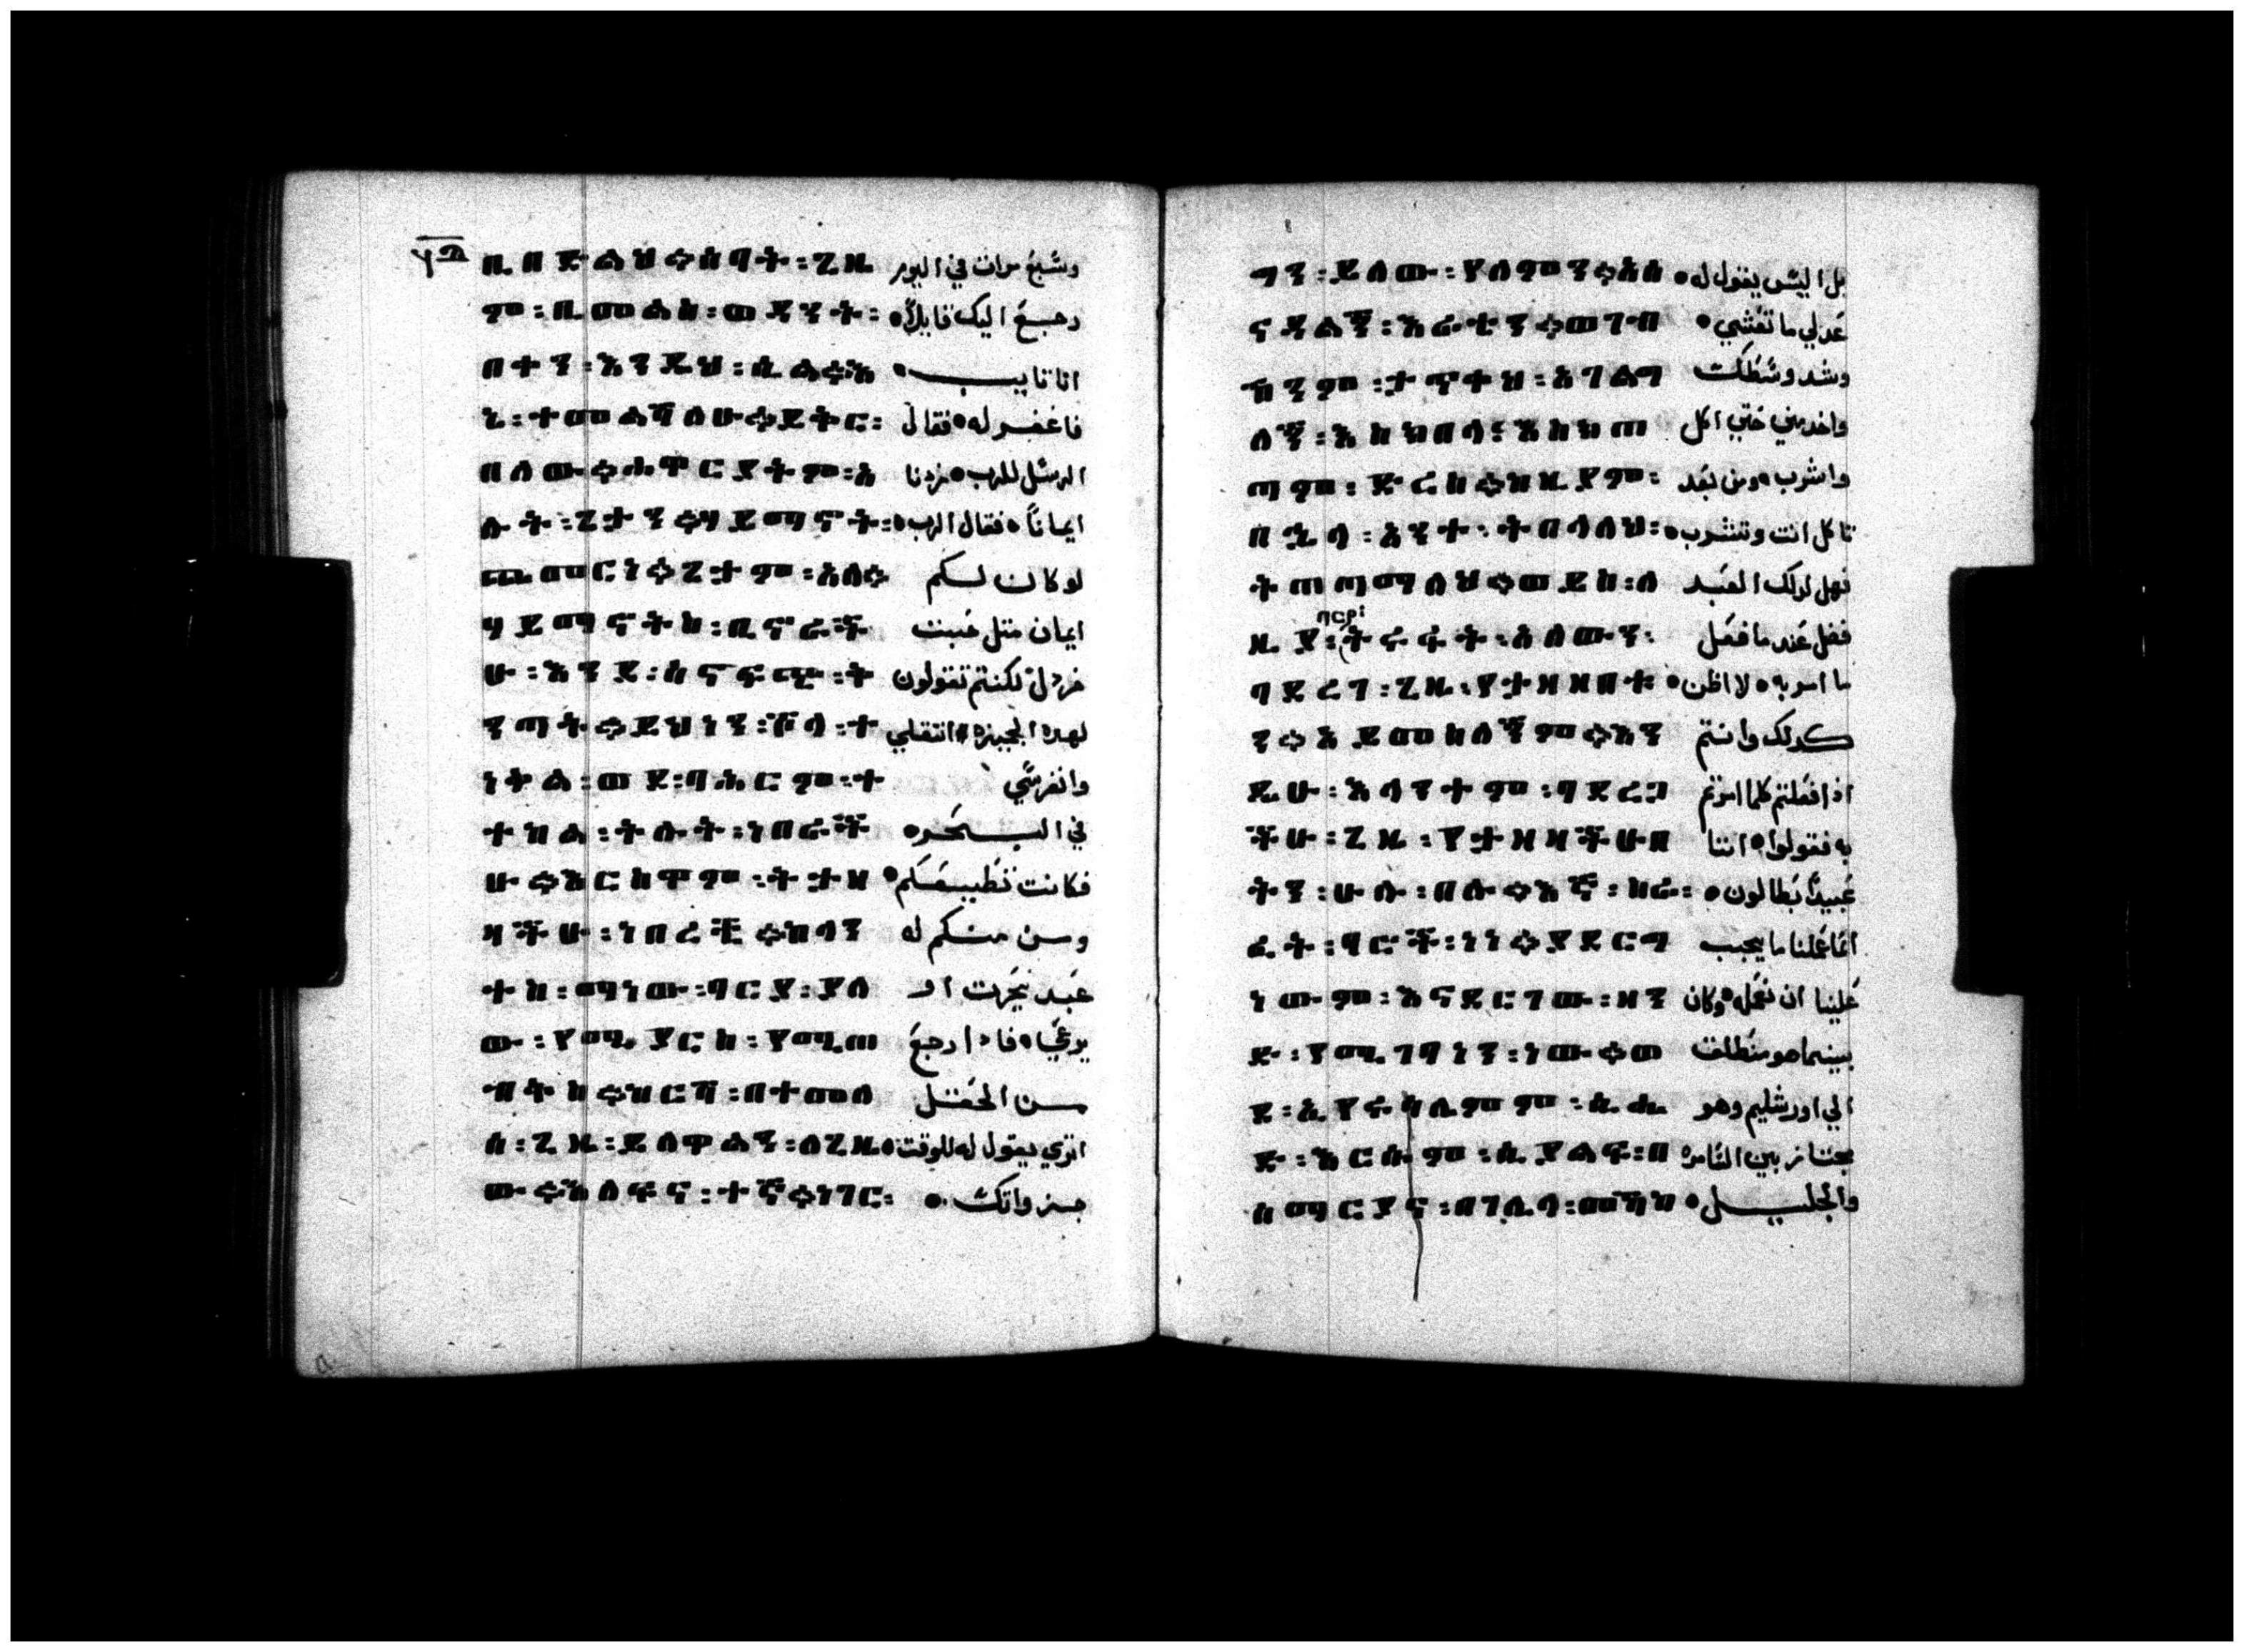 ቢበድልህ።ሰባት፡ጊዜ وسبع مرات في اليوم
ም፡ቢመልስ፡ወዳንተ፡ رجع اليك قايلاً
በቀን፡እንዲህ፡ሲል።እ انا تايب
ኔ፡ተመልሻለሁ።ይቅር፡ فاغفر له فقال
በለው።ሐዋርያትም፡አ الرسل للرب زدنا
ሉት፡ጌታን።ሃይማኖት፡ ايماناً فقال الرب
ጨመርነ።ጌታም፡አለ። لو كان لكم
ሃይማኖትስ፡ቢኖራች ايمان متل حبت
ሁ፡እንደ፡ሰናፍጭ፡ቅ خردل لكنتم تقولون
ንጣት።ይህነን፡ሾላ፡ት لهده الجميزه انتقلي
ነቀል፡ወደ፡ባሕርም፡ት وانغرسي
ተከል፡ትሉት፡ነበራች في البحر
ሁ።እርስዋም፡ትታዘ فكانت تطيعكم
ዛችሁ፡ነበረች።ከላን ومن منكم له
ተስ፡ማነው፡ባርያ፡ያለ عبد يحرت او
ው፡የሚያርስ፡የሚጠ يرعي فادا رجع
ብቅስ።ከርሻ፡በተመለ من الحقل
ሰ፡ጊዜ፡ይለዋልን፡ለጊዜ اتري يقول له للوقت
ው።እለፍና፡ተኛ።ነገር፡ جز واتكئ
ግን፡ይለው፡የለምን።አሰ بل اليس يقول له
ናዳልኝ፡እራትን።ወገብ عد لي ما تعشي
ኽንም፡ታጥቀህ፡አገልግ وشد وسطك
ለኝ፡እክከበላ፡እስክጠ واخدمني حتي اكل
ጣም፡ድረስ።ከዚያም፡ واشرب ومن بعد
ብላ፡አንተ፡ትበላለህ፡ تاكل انت وتشرب
ትጠጣማለህ።ወይስ፡ለ فهل لدلك العبد
ዚያ፡ባርያ፡ትሩፋት፡አለውን፡ فضل عند ما فعل
ባደረገ፡ጊዜ፡የታዘዘበት፡ ما امر به لا اظن
ን።አይመስለኝም።እን كدلك وانتم
ዲሁ፡እላንተም፡ባደረጋ ادا فعلتم كلما امرتم
ችሁ፡ጊዜ፡የታዘዛችሁበ به فقولوا اننا
ትን፡ሁሉ፡በሉ።እኛ፡ከፉ፡ عبيداً بطالون
ፈት፡ባሮች፡ነነ።ያደርግ انما عملنا ما يجب
ነውም፡እናደርገው፡ዘን علينا ان نعمله وكان
ድ፡የሚገባነን፡ነው።ወ بينما هو منطلق
ደ፡ኢየሩሳሌምም፡ሲሔ الي اورشليم وهو
ድ፡እርሱም፡ሲያልፍ፡በ مجتاز بين السامره
ሰማርያና፡በገሊላ፡መሻከ والجليل